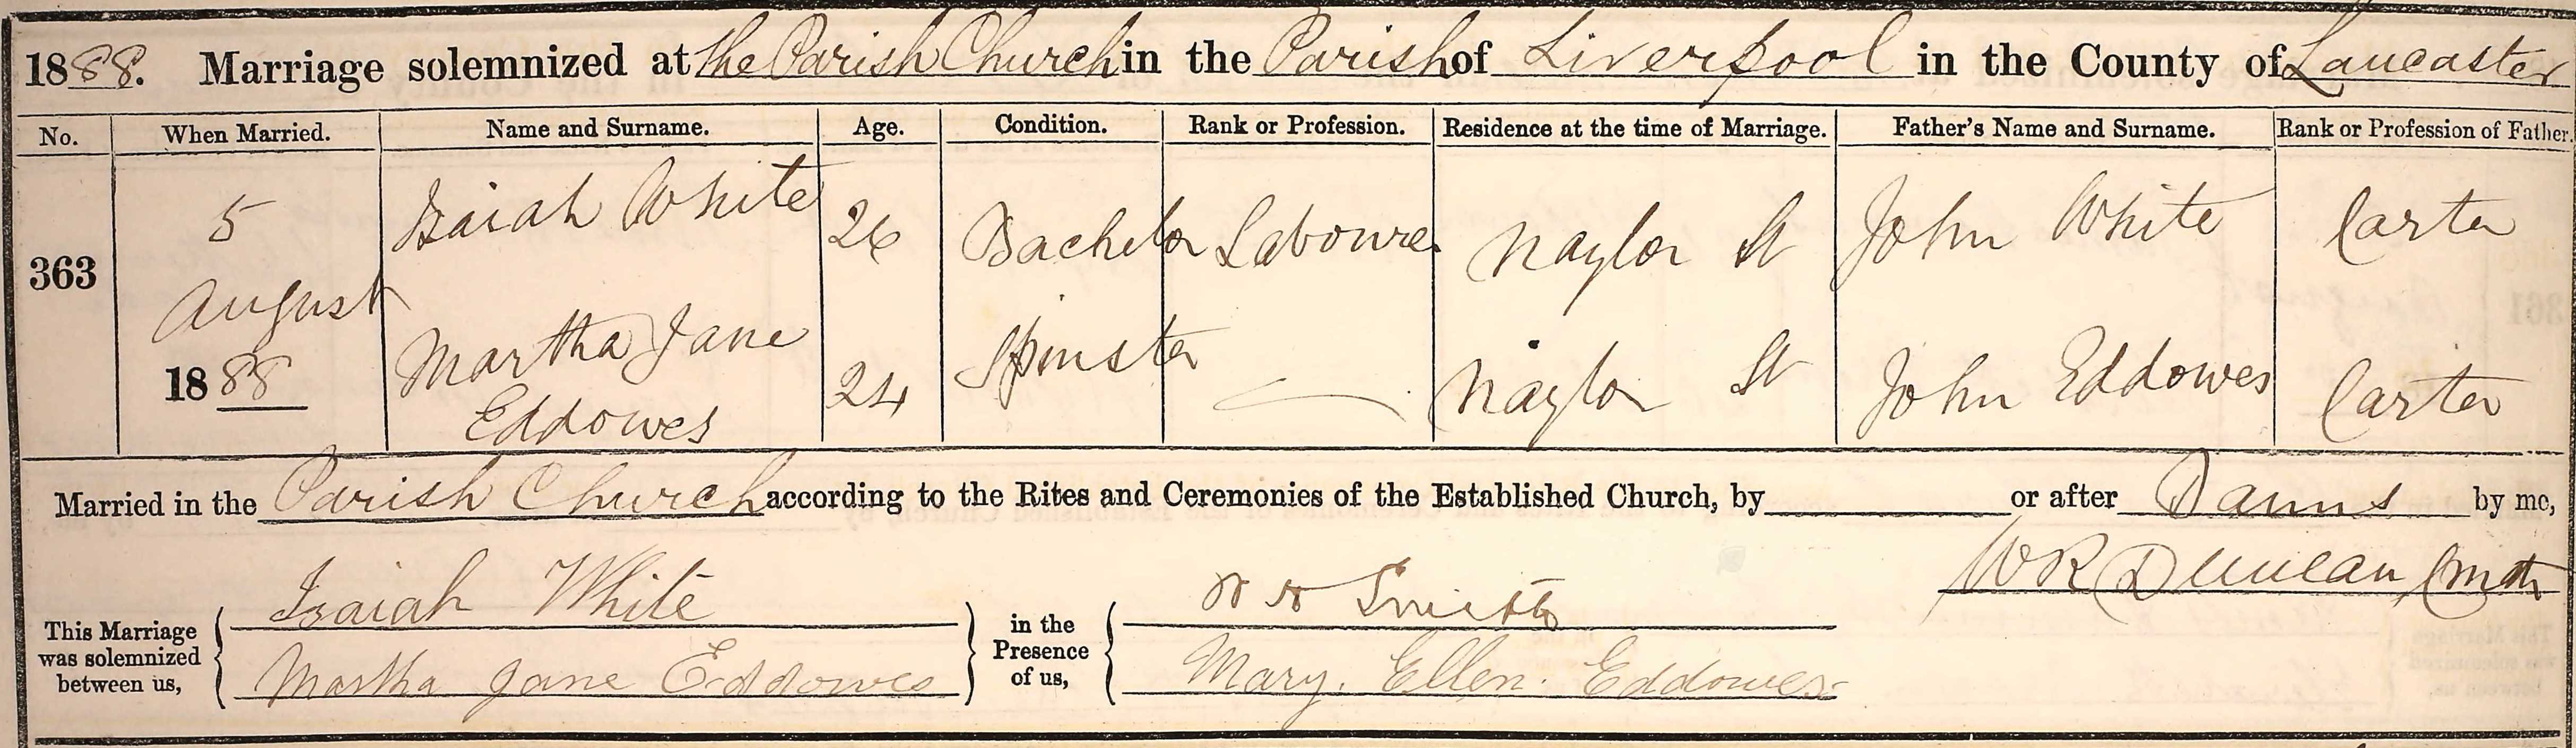 1888. Marriage solemnized at the Parish Church in the Parish of Liverpool in the County of Lancaster
No. When Married. Name and Surname. Age. Condition. Rank or Profession. Residence at the time of Marriage. Father's Name and Surname. Rank or Profession of Father.
363 5 August 1888 Isaiah White 26 Bachelor Labourer Naylor St John White Carter
Martha Jane Eddowes 24 Spinster — Naylor St John Eddowes Carter
Married in the Parish Church according to the Rites and Ceremonies of the Established Church, by or after Banns by me,
W R Duncan
This Marriage was solemnized between us, Isaiah White in the Presence of us, Smith
Martha Jane Eddowes Mary. Ellen. Eddowes